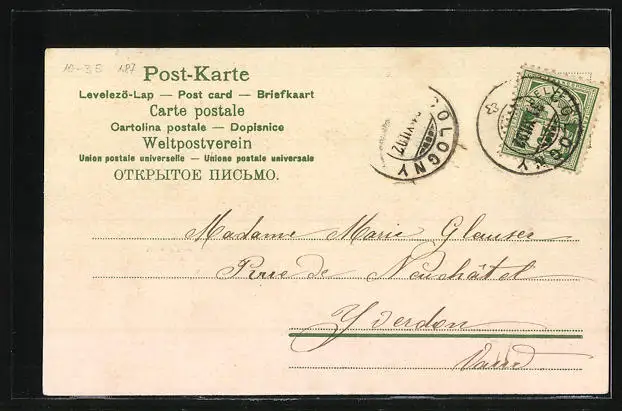 10-35 187
Post-Karte
Levelezö-Lap — Post card — Briefkaart
Carte postale
Cartolina postale — Dopisnice
Weltpostverein
Union postale universelle — Unione postale universale
ОТКРЫТОЕ ПИСЬМО.
COLOGNY
COLOGNY
Madame Marie Glauser
de Neuchâtel
Yverdon
Vaud